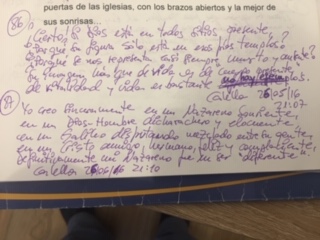 puertas de las iglesias, con los brazos abiertos y la mejor de
sus sonrisas...
86) ¿Cierto, si Dios está en todos sitios, presente,
¿Porque su figura sólo está en esos templos?
¿Porque se nos representa casi siempre muerto y ausente?
Su imagen, más que de vida, es de muerte
de y vida es bastante
Calella 26/05/16
21:07
Yo creo sinceramente en un Nazareno sonriente,
en un Dios-Hombre dicharachero y elocuente
en un Galileo disputando mezclado entre la gente,
en un Cristo amigo, hermano, feliz y complaciente,
definitivamente mi Nazareno que es ser "diferente".
Calella 26/05/16 21:10